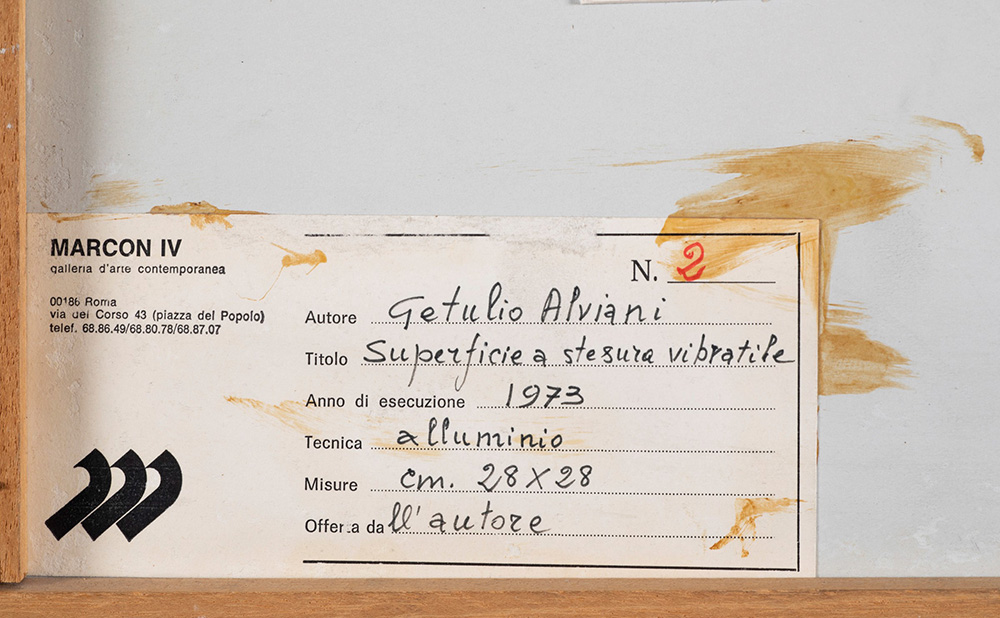 MARCON IV
galleria d'arte contemporanea
00186 Roma
via del Corso 43 (piazza del Popolo)
telef. 68.86.49/68.80.78/68.87.07
N. 2
Autore Getulio Alviani
Titolo Superficie a stesura vibratile
Anno di esecuzione 1973
Tecnica alluminio
Misure cm. 28 X 28
Offerta dall'autore